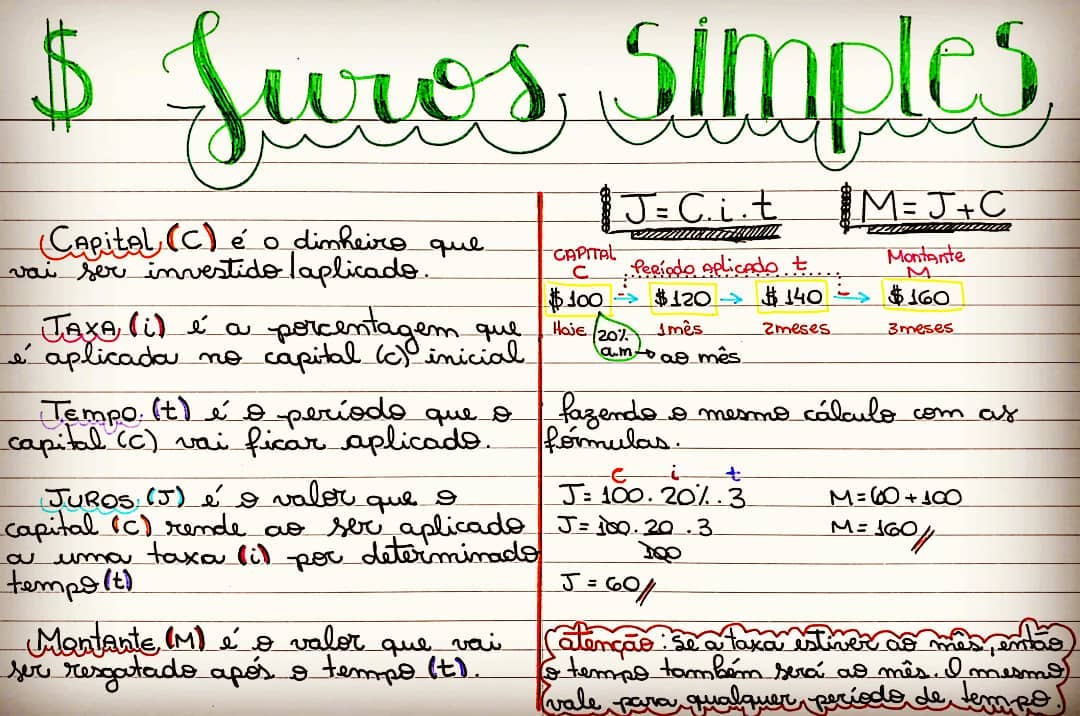 $ Juros Simples
Capital (C) é o dinheiro que
vai ser investido/aplicado.
Taxa (i) é a porcentagem que
é aplicada no capital (c) inicial
Tempo (t) é o período que o
capital (C) vai ficar aplicado.
Juros (J) é o valor que o
capital (C) rende ao ser aplicado
a uma taxa (i) por determinado
tempo (t)
Montante (M) é o valor que vai
ser resgatado após o tempo (t).
J = C.i.t
M = J + C
CAPITAL
C
Período aplicado t
Montante
M
$ 100 → $ 120 → $ 140 → $ 160
Hoje 1 mês 2 meses 3 meses
20%
a.m → ao mês
fazendo o mesmo cálculo com as
fórmulas.
C i t
J = 100 . 20% . 3
J = 100 . 20 . 3
100
J = 60//
M = 60 + 100
M = 160//
atenção: se a taxa estiver ao mês, então
o tempo também será ao mês. O mesmo
vale para qualquer período de tempo.